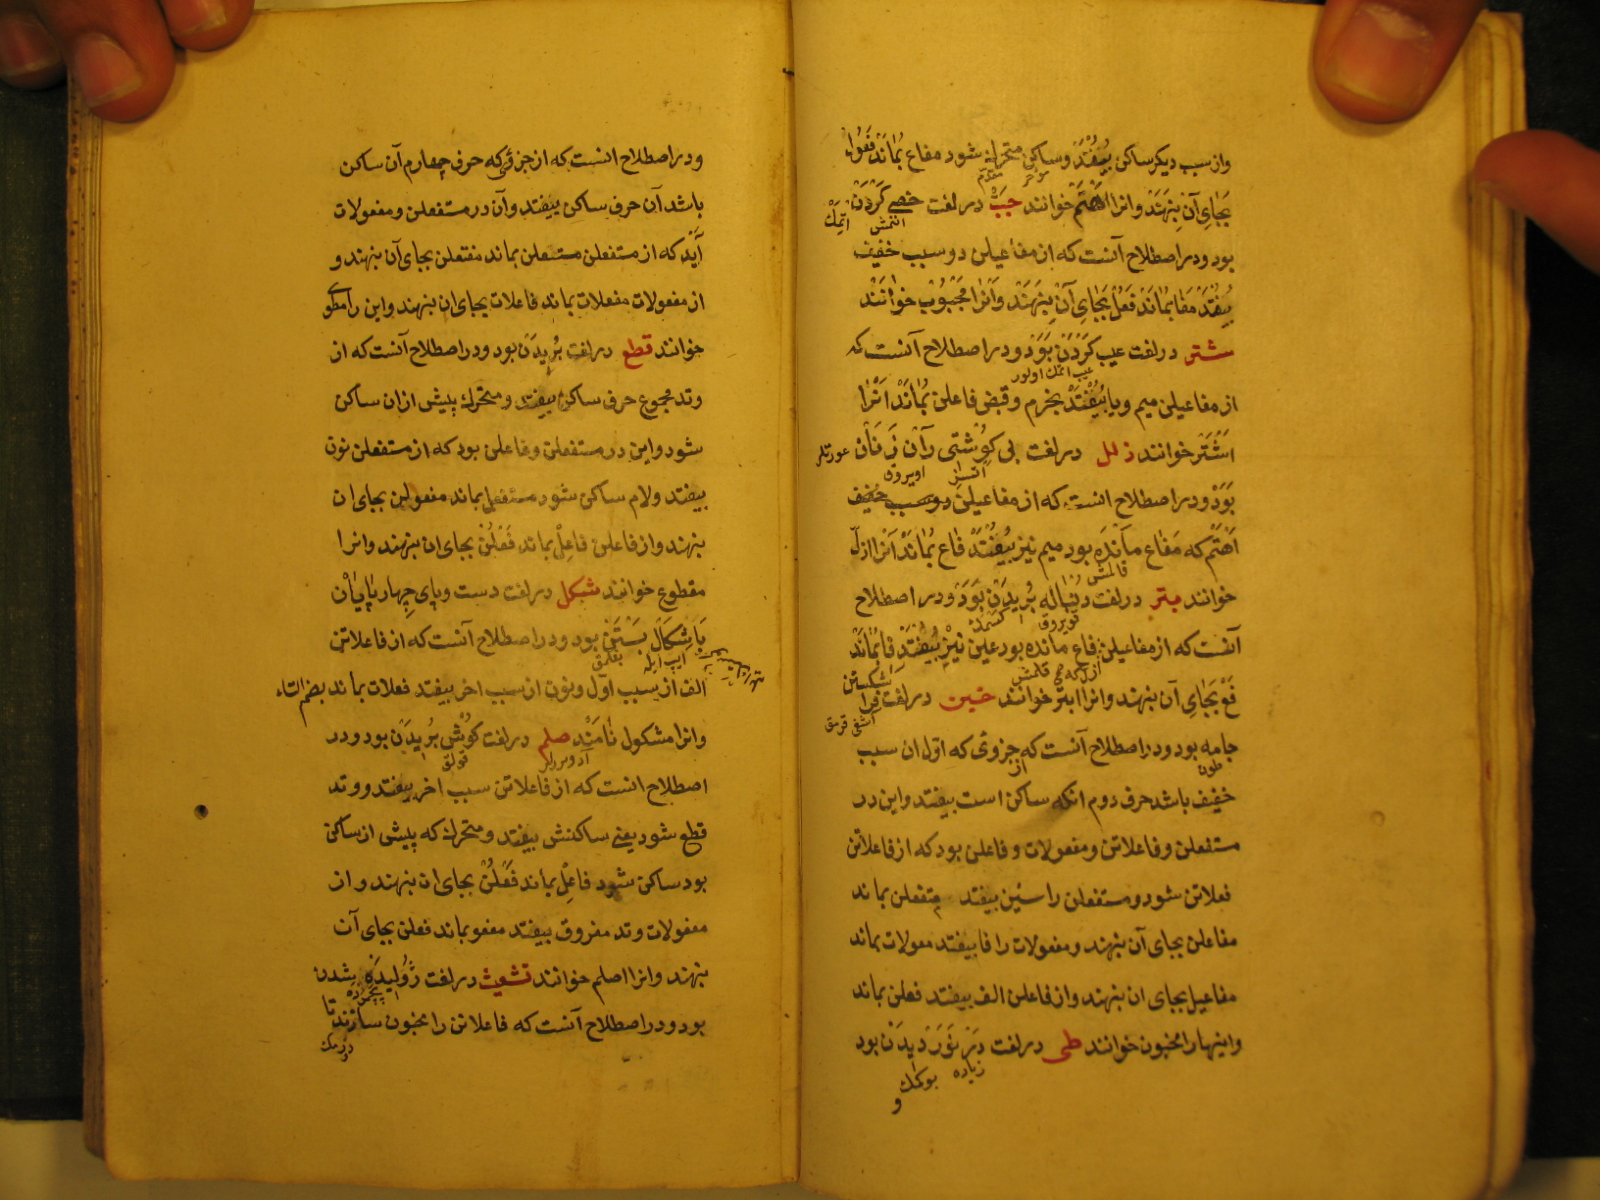 واز سبب دیکر ساکن بیُفتد وساکن متحرك شود مفاع بماند فعول
بجای آن بنهند وانرا اهتم خوانند جبّ در لغت خصی کردن
بود ودر اصطلاح آنست که از مفاعیلن دو سبب خفیف
بیفتد مفا بماند فعل بجای آن بنهند وانرا مجبوب خوانند
شتر در لغت عیب کردن بود ودر اصطلاح آنست که
از مفاعیلن میم ویا بیفتد بخرم وقبض فاعلن بماند انرا
اشتر خوانند زلل در لغت بی کوشتی ران زنان
بود ودر اصطلاح انست که از مفاعیلن دو سبب خفیف
اهتم که مفاع مانده بود میم نیز بیفتد فاع بماند انرا ازلّ
خوانند بتر در لغت دنباله بریدن بود ودر اصطلاح
آنست که از مفاعیلن فاع مانده بود عین نیز بیفتد فا بماند
فع بجای آن بنهند وانرا ابتر خوانند خبن در لغت فرا شکستن
جامه بود ودر اصطلاح آنست که از جزوی که اوّل ان سبب
خفیف باشد حرف دوم انکه ساکن است بیفتد واین در
مستفعلن وفاعلاتن ومفعولات وفاعلن بود که از فاعلاتن
فعلاتن شود ومستفعلن را سین بیفتد متفعلن بماند
مفاعلن بجای آن بنهند ومفعولات را فا بیفتد معولات بماند
مفاعیل بجای ان بنهند واز فاعلن الف بیفتد فعلن بماند
واینها را مخبون خوانند طی در لغت در نوردیدن بود
و
ودر اصطلاح انست که از جزئی که حرف چهارم آن ساکن
باشد آن حرف ساکن بیفتد وآن در مستفعلن ومفعولات
آید که از مستفعلن مستعلن بماند مفتعلن بجای آن بنهند و
از مفعولات مفعلات بماند فاعلات بجای ان بنهند واین را مطوی
خوانند قطع در لغت بریدن بود ودر اصطلاح آنست که از
وتد مجموع حرف ساکن بیفتد ومتحرك پیش از ان ساکن
شود واین در مستفعلن وفاعلن بود که از مستفعلن نون
بیفتد ولام ساکن شود مستفعل بماند مفعولن بجای ان
بنهند واز فاعلن فاعِلْ بماند فَعْلُنْ بجای ان بنهند وانرا
مقطوع خوانند شکل در لغت دست وپای چهارپایان
باشکال بستن بود ودر اصطلاح آنست که از فاعلاتن
الف از سبب اوّل ونون از سبب اخر بیفتد فعلات بماند بضم التاء
وانرا مشکول نامند صلم در لغت کوش بریدن بود ودر
اصطلاح انست که از فاعلاتن سبب اخر بیفتد ووتد
قطع شود یعنی ساکنش بیفتد ومتحرك که پیش از ساکن
بود ساکن شود فاعِلْ بماند فَعْلُنْ بجای ان بنهند واز
مفعولات وتد مفروق بیفتد مفعو بماند فعلن بجای آن
بنهند وانرا اصلم خوانند تشعیث در لغت ژولیده شدن
بود ودر اصطلاح آنست که فاعلاتن را مخبون سازند تا